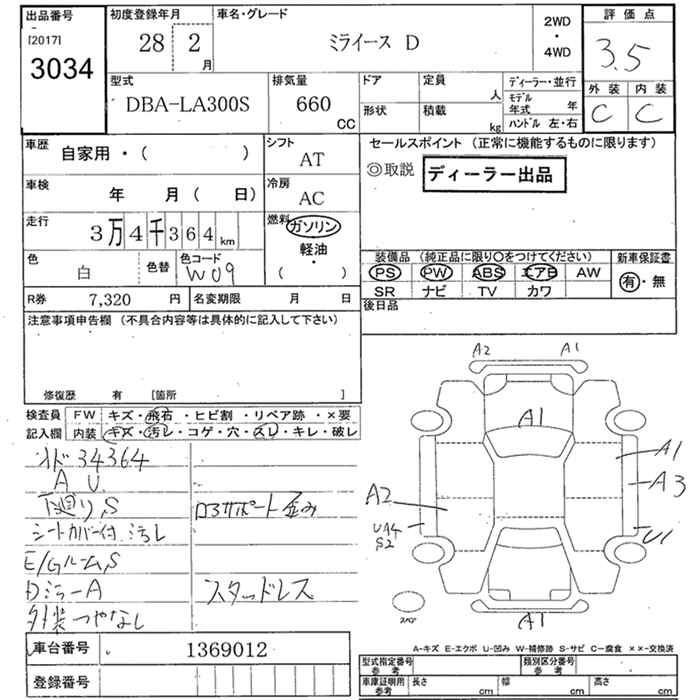 出品番号
[2017]
3034
初度登録年月
28 2 月
車名・グレード
ミライース D
2WD
・
4WD
評価点
3.5
外装 内装
C C
型式
DBA-LA300S
排気量
660 CC
ドア
定員 人
形状
積載 kg
ディーラー・並行
モデル年式 年
ハンドル 左・右
車歴
自家用・( )
シフト
AT
車検
年 月( 日)
冷房
AC
走行
3万4千364km
燃料
ガソリン
軽油・
( )
色
白
色替
色コード
W09
R券 7,320 円
名変期限 月 日
セールスポイント (正常に機能するものに限ります)
◎取説 ディーラー出品
装備品 (純正品に限り○をつけてください)
新車保証書
PS PW ABS エアB AW
有・無
SR ナビ TV カワ
後日品
注意事項申告欄 (不具合内容等は具体的に記入して下さい)
修復歴 有 [箇所 ]
検査員 FW キズ・飛石・ヒビ割・リペア跡・×要
記入欄 内装 キズ・汚レ・コゲ・穴・スレ・キレ・破レ
オド 34364
A U
下廻り、S
シートカバー付 汚レ
E/Gルーム、S
Dミラー A
外装つやなし
コアサポート歪み
スタッドレス
A2 A1
A1
A1
A3
A2
UA4
S2
U1
スペア
A1
車台番号 1369012
登録番号
A-キズ E-エクボ U-凹み W-補修跡 S-サビ C-腐食 ××-交換済
型式指定番号 参考
類別区分番号 参考
車庫証明用 参考 長さ cm 幅 cm 高さ cm